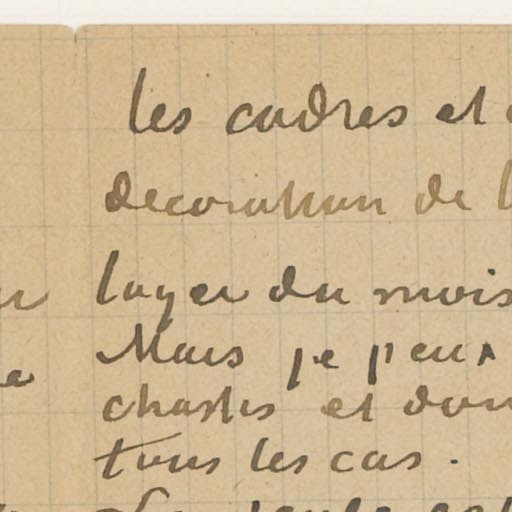 les cadres et
decoration de l
loyer du mois
Mais je peux
chastes et dans
tous les cas.
La seule est